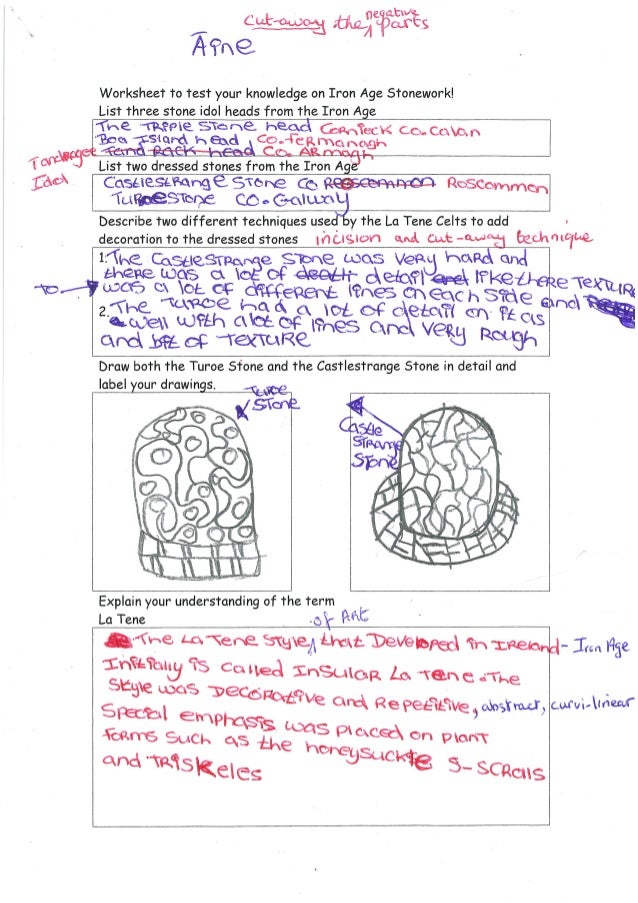 cut-away the negative parts
Áine
Worksheet to test your knowledge on Iron Age Stonework!
List three stone idol heads from the Iron Age
The TRIPIE Stone head CORnleck CO.Cavan
Boa Island head CO.Fermanagh
Tandragee Idol
Tand Rack head CO. ARmagh
List two dressed stones from the Iron Age
CastleStRange Stone CO Roscommon Roscommon
TUROE STONE CO.Galway
Describe two different techniques used by the La Tene Celts to add
decoration to the dressed stones incision and cut-away technique
1. The CastleStRange Stone was very hard and
there was a lot of detail like there TEXTURE
TO was a lot of different lines on each side and
2. The Turoe had a lot of detail on it as
well with a lot of lines and very Rough
and bit of TEXTURE
Draw both the Turoe Stone and the Castlestrange Stone in detail and
label your drawings.
Turoe Stone
Castle StRange Stone
Explain your understanding of the term
La Tene
The LA Tene Style of Art that Developed in IReland - Iron Age
Initially is called Insular La Tene. The
Style was DECORATIVE and Repetitive, abstract, curvi-linear
Special emphasis was placed on plant
forms such as the honeysuckle S-SCRolls
and TRISKeles